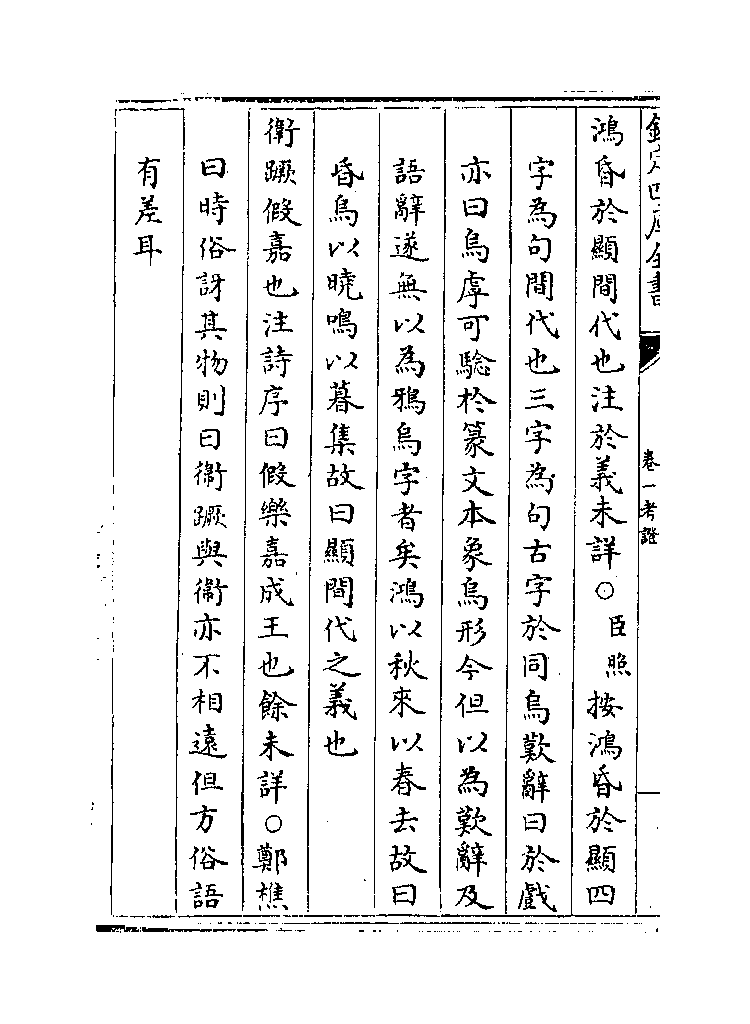 欽定四庫全書
卷一考證
鴻昏於顯間代也注於義未詳○臣照按鴻昏於顯四
字為句間代也三字為句古字於同烏歎辭曰於戲
亦曰烏虖可驗於篆文本象烏形今但以為歎辭及
語辭遂無以為鴉烏字者矣鴻以秋來以春去故曰
昏烏以曉鳴以暮集故曰顯間代之義也
衛蹶假嘉也注詩序曰假樂嘉成王也餘未詳○鄭樵
曰時俗訝其物則曰衛蹶與衞亦不相遠但方俗語
有差耳